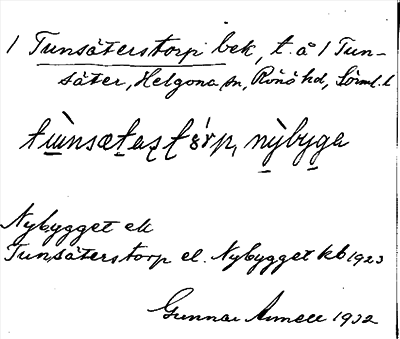 1 Tunsäterstorp bek, t. å 1 Tun-
säter, Helgona sn, Rönö hd, Sörml. l.
tùnsætaʂtårp, nỳbyga
Nybygget ek
Tunsäterstorp el. Nybygget kb 1923
Gunnar Amell 1932